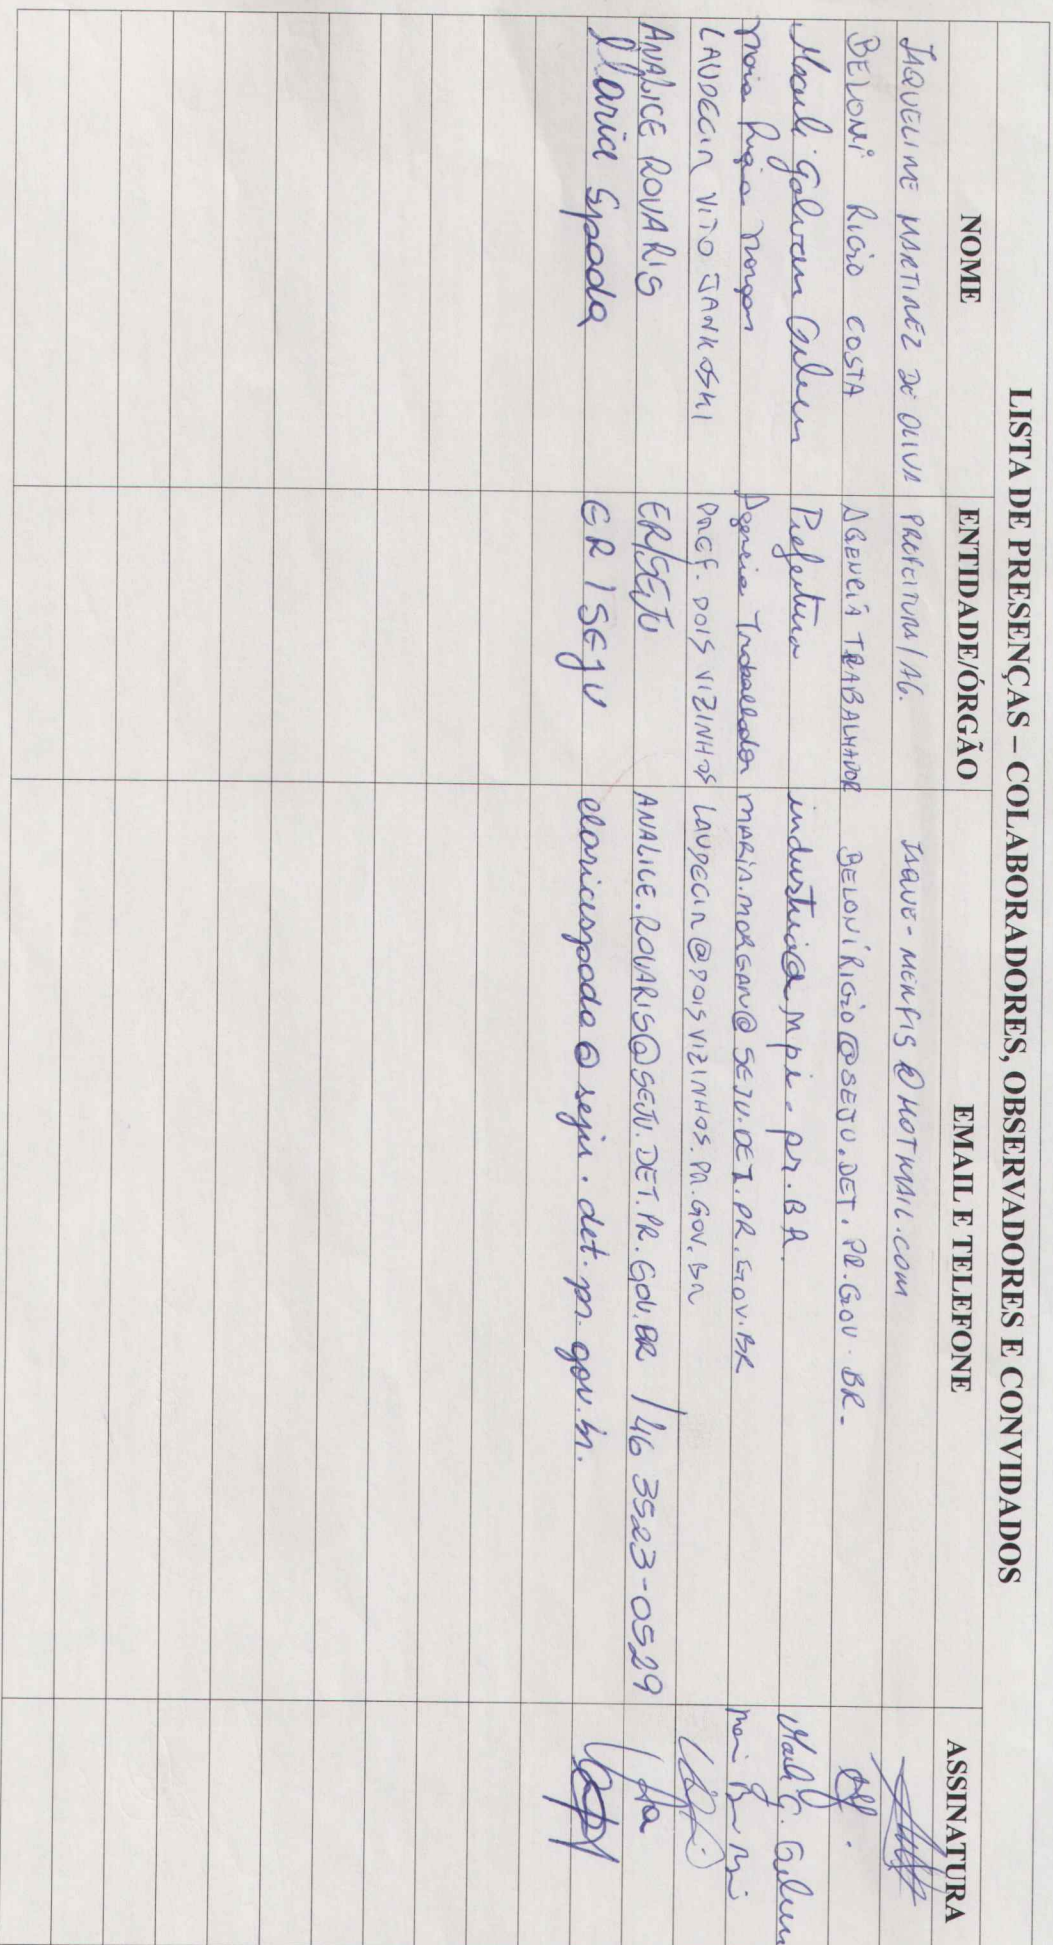 LISTA DE PRESENÇAS – COLABORADORES, OBSERVADORES E CONVIDADOS
NOME ENTIDADE/ÓRGÃO EMAIL E TELEFONE ASSINATURA
JAQUELINE MARTINEZ DE OLIVA PREFEITURA/AG. JAQUE-MENFIS@HOTMAIL.COM
BELONI RIGIO COSTA AGENCIA TRABALHADOR BELONIRIGIO@SEJU.DET.PR.GOV.BR-
Galvan Prefeitura industria@mpi-pr.BR.
Maria Agencia Trabalhador MARIA.MORGAN@SEJU.DET.PR.GOV.BR
LAUDECIR VITO JANKOSKI PREF. DOIS VIZINHOS LAUDECIR@DOISVIZINHOS.PR.GOV.BR
ANALICE ROVARIS ER/SEJU ANALICE.ROVARIS@SEJU.DET.PR.GOV.BR /46 3523-0529
Clarice Spada ER/SEJU claricespada@seju.det.pr.gov.br.